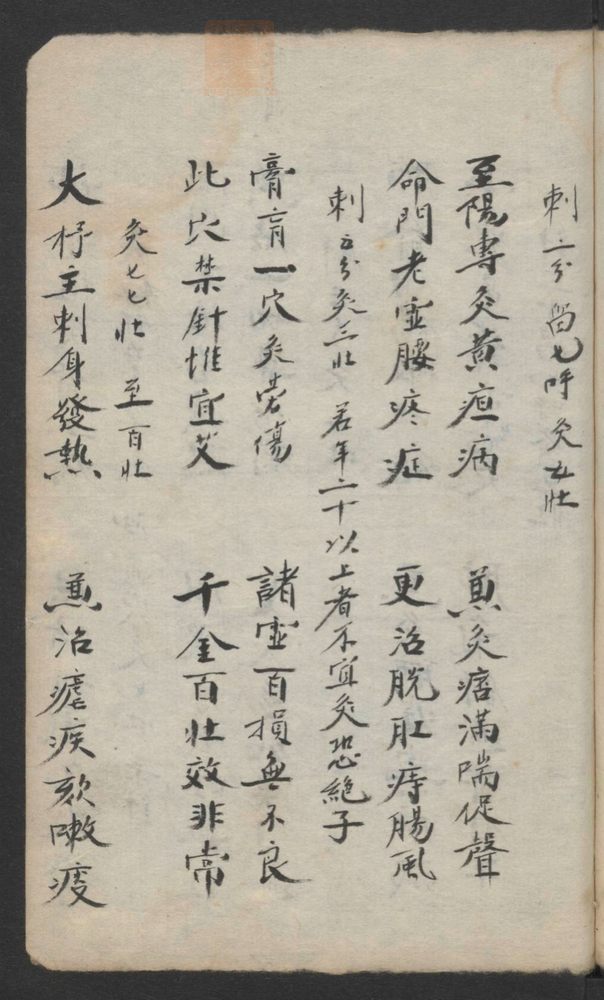 刺二分留七呼灸五壯
至陽專灸黄疸病　兼灸痞滿喘促聲
命門老虛腰疼症　更治脱肛痔腸風
刺五分灸三壯　若年二十以上者不宜灸恐絕子
膏肓一穴灸劳傷　諸虛百損無不良
此穴禁針惟宜艾　千金百壯效非常
灸七七壯至百壯
大杼主刺身發熱　兼治瘧疾欬嗽痰